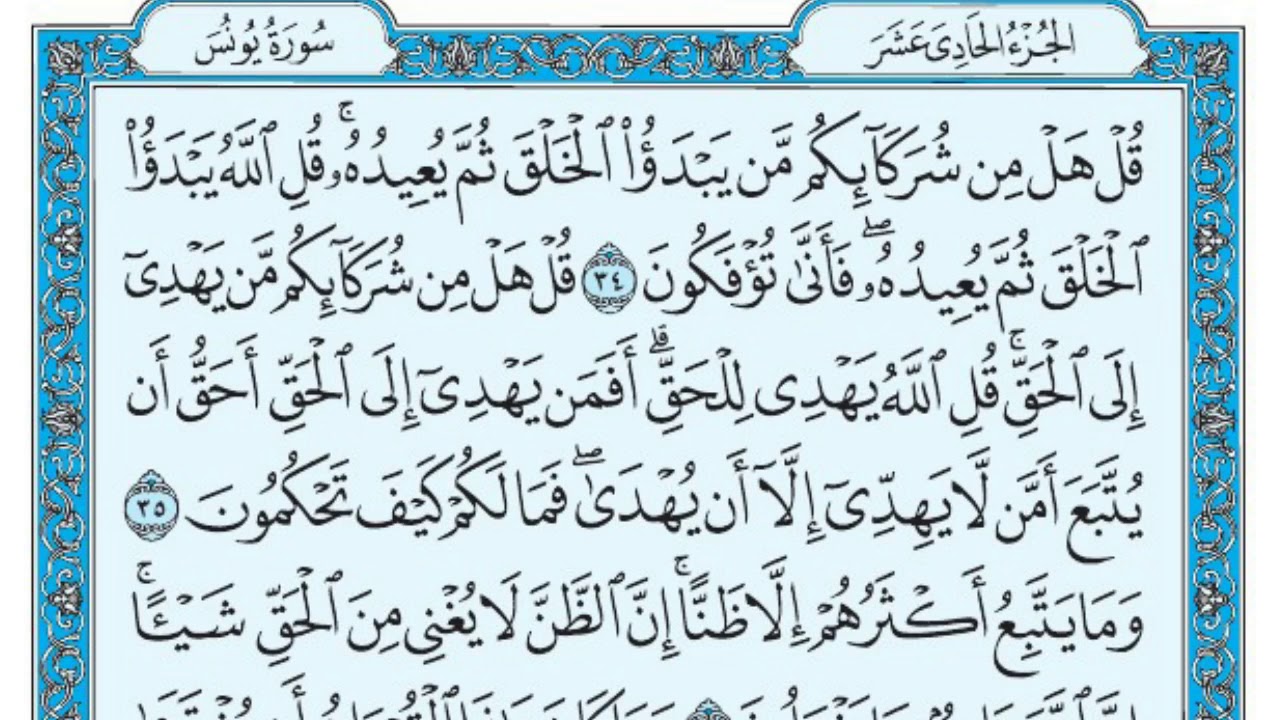 الجُزْءُ الحَادِىَ عَشَرَ
سُورَةُ يُونُسَ
قُلۡ هَلۡ مِن شُرَكَآئِكُم مَّن يَبۡدَؤُاْ ٱلۡخَلۡقَ ثُمَّ يُعِيدُهُۥۚ قُلِ ٱللَّهُ يَبۡدَؤُاْ
ٱلۡخَلۡقَ ثُمَّ يُعِيدُهُۥۖ فَأَنَّىٰ تُؤۡفَكُونَ ٣٤ قُلۡ هَلۡ مِن شُرَكَآئِكُم مَّن يَهۡدِىٓ
إِلَى ٱلۡحَقِّۚ قُلِ ٱللَّهُ يَهۡدِى لِلۡحَقِّۗ أَفَمَن يَهۡدِىٓ إِلَى ٱلۡحَقِّ أَحَقُّ أَن
يُتَّبَعَ أَمَّن لَّا يَهِدِّىٓ إِلَّآ أَن يُهۡدَىٰۖ فَمَا لَكُمۡ كَيۡفَ تَحۡكُمُونَ ٣٥
وَمَا يَتَّبِعُ أَكۡثَرُهُمۡ إِلَّا ظَنًّاۚ إِنَّ ٱلظَّنَّ لَا يُغۡنِى مِنَ ٱلۡحَقِّ شَيۡـًٔاۚ